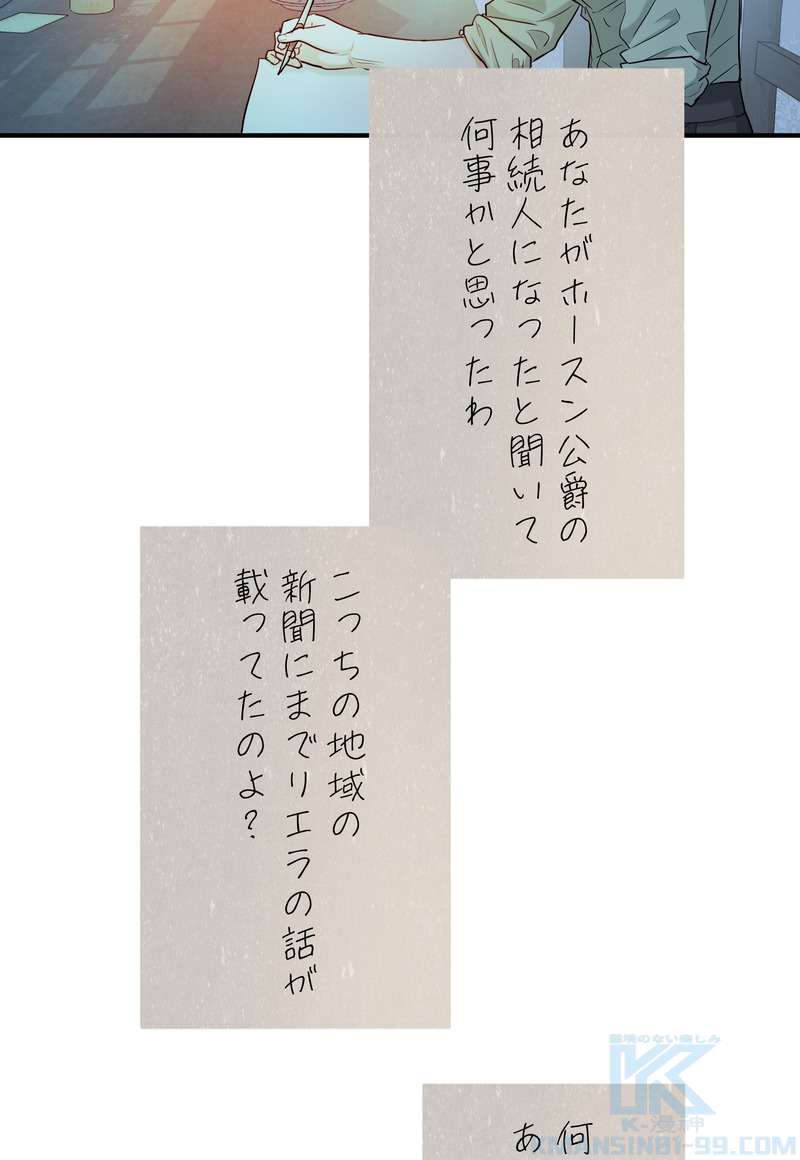 あなたがホースン公爵の
相続人になったと聞いて
何事かと思ったわ
こっちの地域の
新聞にまでリエラの話が
載ってたのよ？
何
あ
K-漫神
KMANSIN81-99.COM